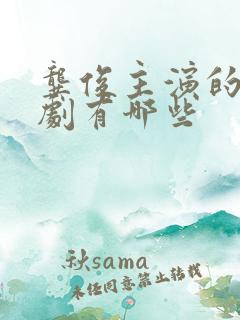 龔俊主演的
劇有哪些
秋sama
未經同意禁止轉載